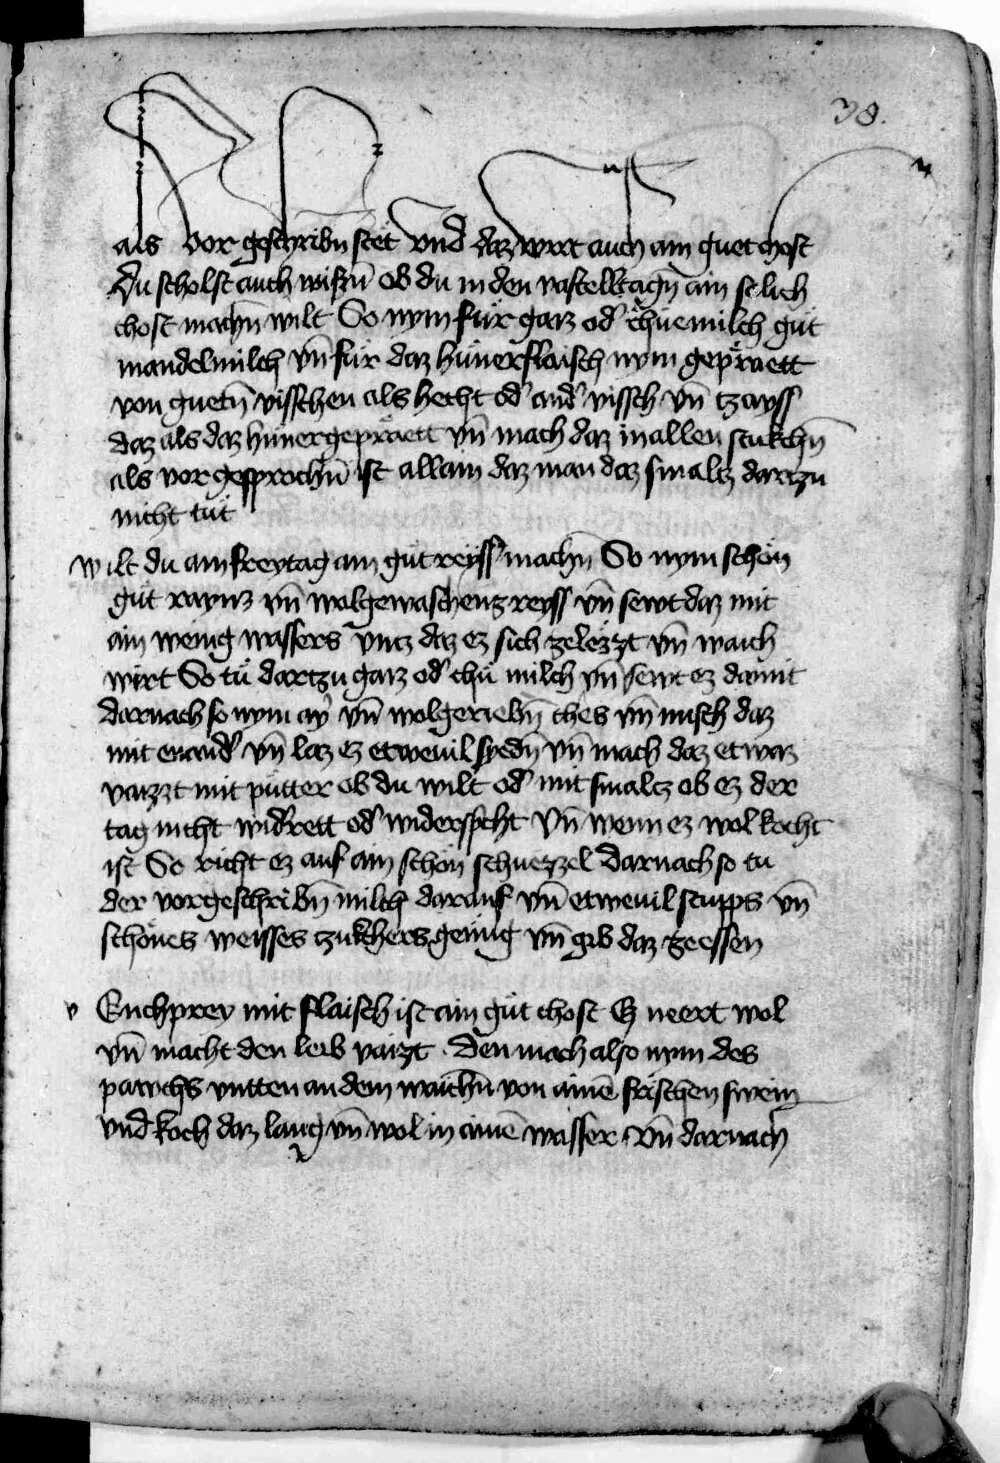 38.
als vor geschribn̄ stet vnd daz wirt auch ain guet chost
Du scholst auch wissn̄ ob du in den vastelltagn̄ ain solich
chost machn̄ wilt So nym fuͤr gaiz od' chuͤemilch guͤt
mandelmilch vn̄ fuͤr daz huͤnerflaisch nym gepraett
von guetn̄ visschen als hecht od' and' vissch vn̄ tzayss
daz als daz hunergepraett vn̄ mach daz in allen stukchn̄
als vor gesprochn̄ ist allain daz man daz smalcz dartzu
nicht tuͤt
wilt du am freytag ain guͤt reyss machn̄ So nym schoͤn
guͤt raynz vn̄ wolgewaschenz reyss vn̄ sewt daz mit
ain wenig wassers vncz daz ez sich zelezzt vn̄ waich
wirt So tuͤ dartzu gaiz od' chuͤ milch vn̄ sewt ez damit
darnach so nym ay' vn̄ wolgeriebn̄ ches vn̄ misch daz
mit enand' vn̄ laz ez etweuil syedn̄ vn̄ mach daz etwaz
vaizzt mit putter ob du wilt od' mit smalcz ob ez der
tag nicht wid'rett od' widerspricht vn̄ wenn ez wol kocht
ist So richt ez auf ain schoͤn schuezzel Darnach so tu
der vorgeschribn̄ milch darauf vn̄ etweuil stupps vn̄
schoͤnes weisses tzukhers genuͤg vn̄ gib daz zeessen
v Enchprey mit flaisch ist ain guͤt chost Ez neert wol
vn̄ macht den leib vaizt . Den mach also nym des
pawchs vntten an dem waichn̄ von ainē frischen swein
vnd koch daz lang vn̄ wol in ainē wasser vn̄ darnach